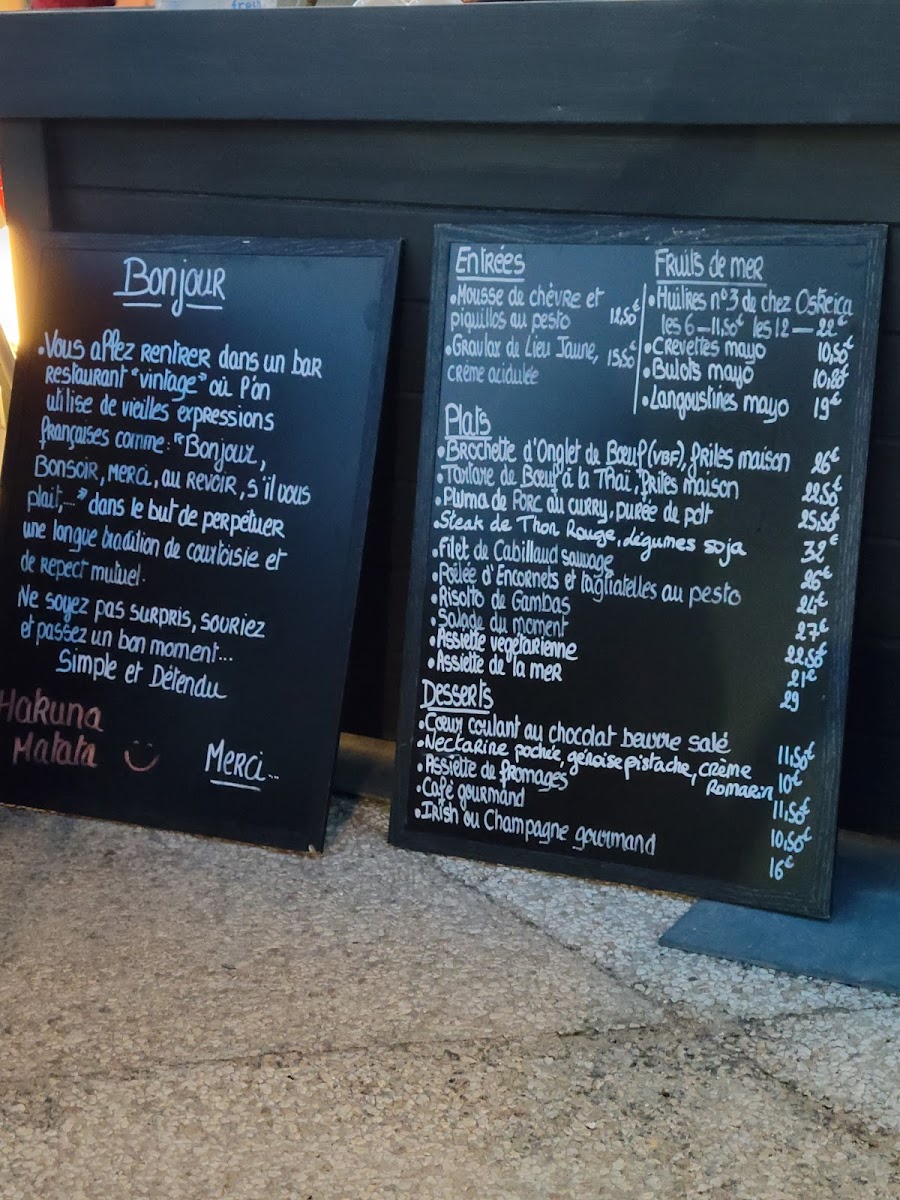 fresh
Bonjour
•Vous allez rentrer dans un bar
restaurant "vintage" où l'on
utilise de vieilles expressions
françaises comme: "Bonjour,
Bonsoir, merci, au revoir, s'il vous
plait,..." dans le but de perpétuer
une longue tradition de courtoisie et
de repect mutuel.
Ne soyez pas surpris, souriez
et passez un bon moment...
Simple et Détendu
Hakuna
Matata
Merci...
Entrées
•Mousse de chèvre et
piquillos au pesto 12,50€
•Gravlax de Lieu Jaune, 15,50€
crème acidulée
Fruits de mer
•Huîtres n°3 de chez Ostreica
les 6 — 11,50€ les 12 — 22€
•Crevettes mayo 10,50€
•Bulots mayo 10,80€
•Langoustines mayo 19€
Plats
•Brochette d'Onglet de Bœuf (VBF), frites maison 26€
•Tartare de Bœuf à la Thaï, frites maison 22,50€
•Pluma de Porc au curry, purée de pdt 25,50€
•Steak de Thon Rouge, légumes soja 32€
•Filet de Cabillaud sauvage 26€
•Poêlée d'Encornets et tagliatelles au pesto 24€
•Risotto de Gambas 27€
•Salade du moment 22,50€
•Assiette végétarienne 21€
•Assiette de la mer 29
Desserts
•Cœur coulant au chocolat beurre salé 11,50€
•Nectarine pochée, génoise pistache, crème
romarin 10€
•Assiette de fromages 11,50€
•Café gourmand 10,50€
•Irish ou Champagne gourmand 16€